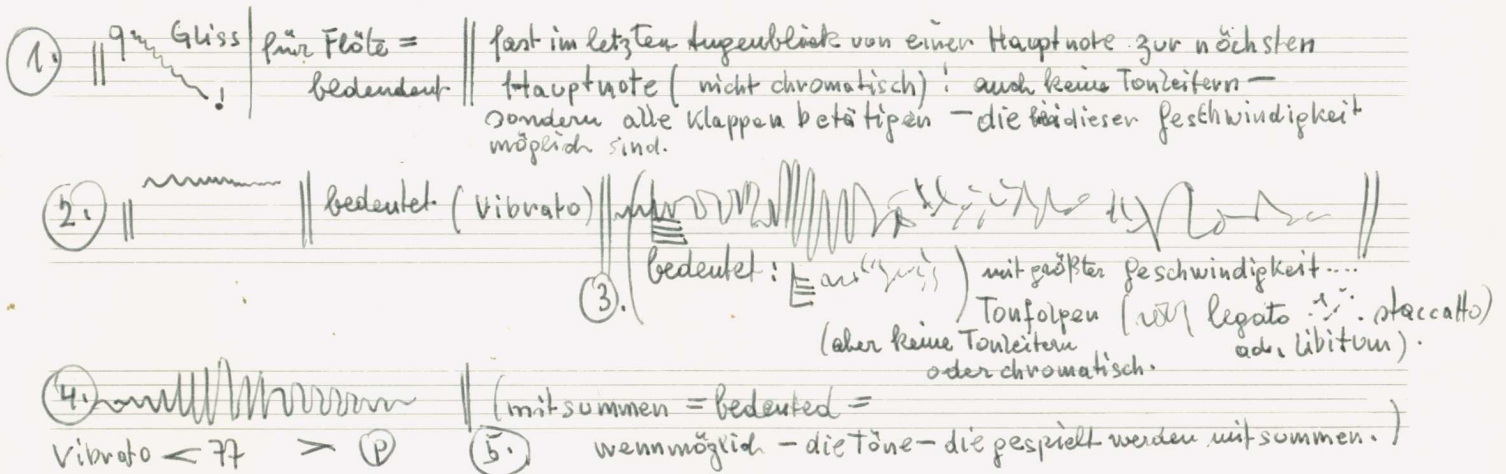 1. Gliss für Flöte = fast im letzten Augenblick von einer Hauptnote zur nächsten
bedeudeut Hauptnote ( nicht chromatisch ) ! auch keine Tonleitern –
sondern alle Klappen betätigen – die bei dieser Geschwindigkeit
möglich sind.
2. bedeutet (Vibrato)
3. ( bedeutet : ) mit größter Geschwindigkeit ....
Tonfolgen ( legato staccatto)
(aber keine Tonleitern ad. libitum ) .
oder chromatisch.
4. ( mitsummen = bedeuted =
Vibrato < ff > p 5. wennmöglich – die Töne – die gespielt werden mitsummen. )